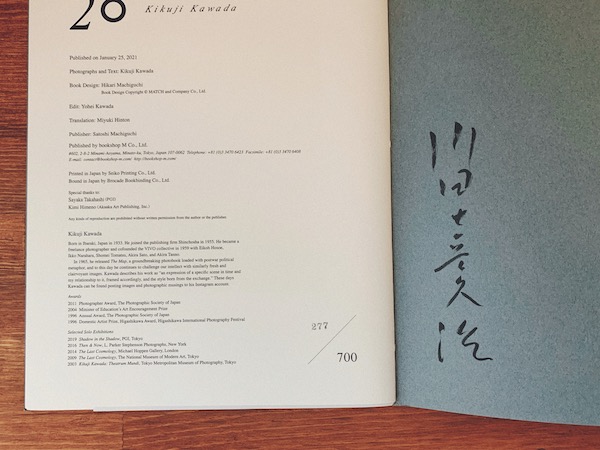 20
Kikuji Kawada
Published on January 25, 2021
Photographs and Text: Kikuji Kawada
Book Design: Hikari Machiguchi
Book Design Copyright © MATCH and Company Co., Ltd.
Edit: Yohei Kawada
Translation: Miyuki Hinton
Publisher: Satoshi Machiguchi
Published by bookshop M Co., Ltd.
#402, 2-8-2 Minami-Aoyama, Minato-ku, Tokyo, Japan 107-0062 Telephone: +81 (0)3 3470 6423 Facsimile: +81 (0)3 3470 6408
E-mail: contact@bookshop-m.com http://bookshop-m.com/
Printed in Japan by Seiko Printing Co., Ltd.
Bound in Japan by Brocade Bookbinding Co., Ltd.
Special thanks to:
Sayaka Takahashi (PGI)
Kimi Himeno (Akaaka Art Publishing, Inc.)
Any kinds of reproduction are prohibited without written permission from the author or the publisher.
Kikuji Kawada
Born in Ibaraki, Japan in 1933. He joined the publishing firm Shinchosha in 1955. He became a
freelance photographer and cofounded the VIVO collective in 1959 with Eikoh Hosoe,
Ikko Narahara, Shomei Tomatsu, Akira Sato, and Akira Tanno.
In 1965, he released The Map, a groundbreaking photobook loaded with postwar political
metaphor, and to this day he continues to challenge our intellect with similarly fresh and
clairvoyant images. Kawada describes his work as "an expression of a specific scene in time and
my relationship to it, framed accordingly, and the style born from the exchange." These days
Kawada can be found posting images and photographic musings to his Instagram account.
Awards
2011 Photographer Award, The Photographic Society of Japan
2004 Minister of Education's Art Encouragement Prize
1996 Annual Award, The Photographic Society of Japan
1996 Domestic Artist Prize, Higashikawa Award, Higashikawa International Photography Festival
Selected Solo Exhibitions
2019 Shadow in the Shadow, PGI, Tokyo
2016 Then & Now, L. Parker Stephenson Photographs, New York
2014 The Last Cosmology, Michael Hoppen Gallery, London
2009 The Last Cosmology, The National Museum of Modern Art, Tokyo
2003 Kikuji Kawada: Theatrum Mundi, Tokyo Metropolitan Museum of Photography, Tokyo
277
700
川田喜久治